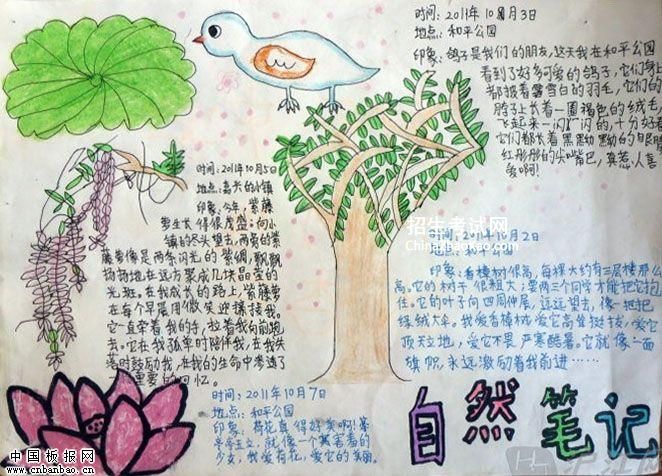 时间：2011年10月3日
地点：和平公园
印象：鸽子是我们的朋友，这天我在和平公园
看到了好多可爱的鸽子，它们身上
都披着雪白的羽毛，它们的
脖子上长着一圈褐色的绒毛，
飞起来一闪一闪的，十分好
它们都长着黑黝黝的眼
红彤彤的尖嘴巴，真惹人喜
爱啊！
时间：2011年10月5日
地点：嘉兴的小镇
印象：今年，紫藤
萝生长得很茂盛：向小
镇的尽头望去，两旁的紫
藤萝像是两条闪光的紫绸，飘飘
扬扬地在远方聚成几块晶莹的
光斑。在我成长的路上，紫藤萝
在每个早晨用微笑迎接我。
它一直牵着我的手，拉着我向前跑
去。它在我孤单时陪伴我，在我失
落时鼓励我，在我的生命中参透了
重要的回忆。
招生考试网
Chinazhaokao.com
时间：2011年10月2日
地点：和平公园
印象：香樟树很高，每棵大约有三层楼那么
高。它的树干很粗大：要两三个同学才能把它抱
住。它的叶子向四周伸展，远远望去，像一把把
绿绒大伞。我爱香樟树，爱它高耸挺拔，爱它
顶天立地，爱它不畏严寒酷暑。它就像一面
旗帜，永远激励着我前进……
时间：2011年10月7日
地点：和平公园
印象：荷花真得好美啊！亭
亭玉立，就像一个害着的
少女，我爱荷花，爱它的美丽。
自然笔记
中国板报网
www.cnbanbao.cn